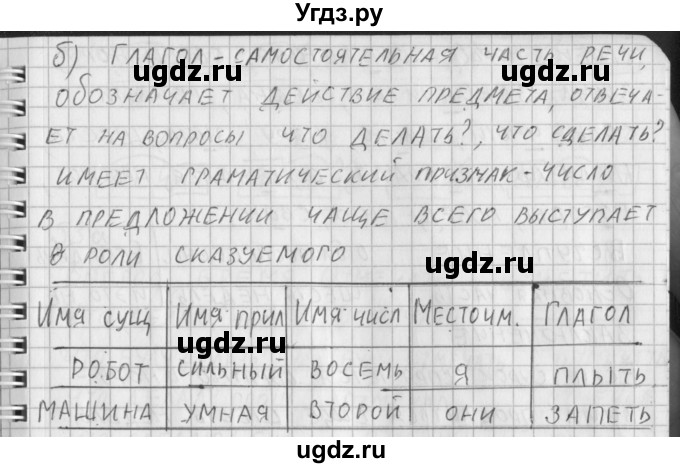 Угдз.ру
б) ГЛАГОЛ - САМОСТОЯТЕЛЬНАЯ ЧАСТЬ РЕЧИ,
ugdz.ru ugdz.ru
ОБОЗНАЧАЕТ ДЕЙСТВИЕ ПРЕДМЕТА, ОТВЕЧА-
ЕТ НА ВОПРОСЫ ЧТО ДЕЛАТЬ?, ЧТО СДЕЛАТЬ?
ugdz.ru
ИМЕЕТ ГРАМАТИЧЕСКИЙ ПРИЗНАК - ЧИСЛО
В ПРЕДЛОЖЕНИИ ЧАЩЕ ВСЕГО ВЫСТУПАЕТ
В РОЛИ СКАЗУЕМОГО
ugdz.ru
ИМЯ СУЩ ИМЯ ПРИЛ ИМЯ ЧИСЛ МЕСТОИМ. ГЛАГОЛ
ugdz.ru
РОБОТ СИЛЬНЫЙ ВОСЕМЬ Я ПЛЫТЬ
МАШИНА УМНАЯ ВТОРОЙ ОНИ ЗАПЕТЬ
ugdz.ru ugdz.ru
ugdz.ru